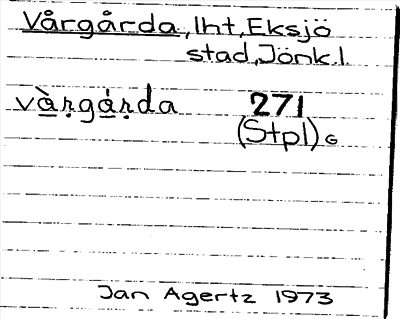 Vårgårda, lht, Eksjö
stad, Jönk.l.
vå̱̀ṛgǻ̱ṛda 271
(Stpl) G
Jan Agertz 1973